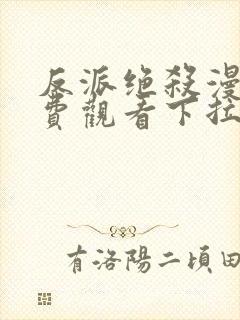 反派绝殺漫
費觀看下拉
有洛陽二頃田